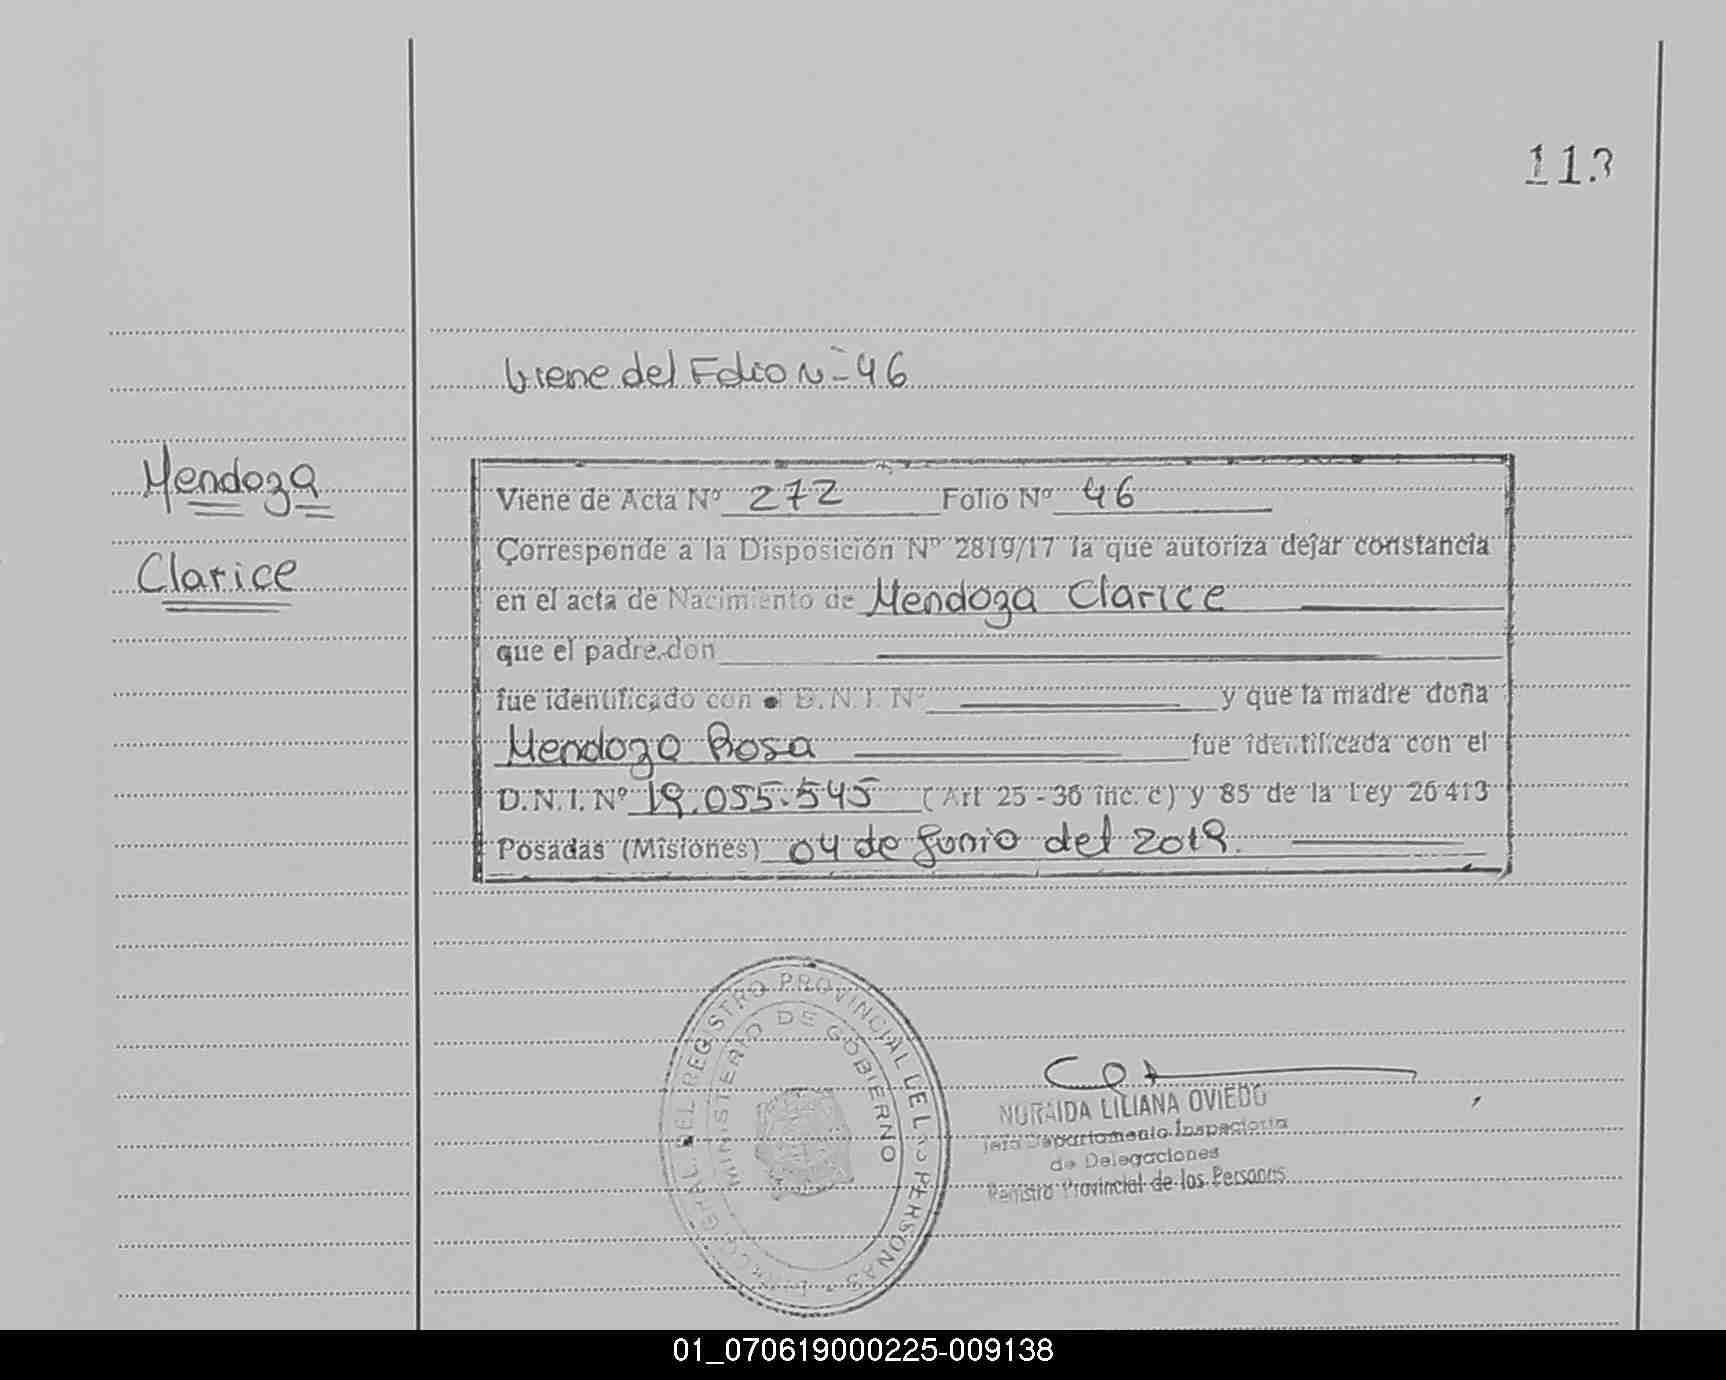 113
Viene del Folio Nº 46
Mendoza
Clarice
Viene de Acta Nº 272 Folio Nº 46
Corresponde a la Disposición Nº 2819/17 la que autoriza dejar constancia
en el acta de Nacimiento de Mendoza Clarice
que el padre don
fue identificado con el D.N.I. Nº y que la madre doña
Mendoza Rosa fue identificada con el
D.N.I. Nº 19.055.545 (Art 25 - 36 inc. c) y 85 de la Ley 26413
Posadas (Misiones) 04 de Junio del 2019.
GRAL. DEL REGISTRO PROVINCIAL DE LAS PERSONAS
MINISTERIO DE GOBIERNO
NORAIDA LILIANA OVIEDO
Jefa Departamento Inspectoria
de Delegaciones
Registro Provincial de las Personas
01_070619000225-009138